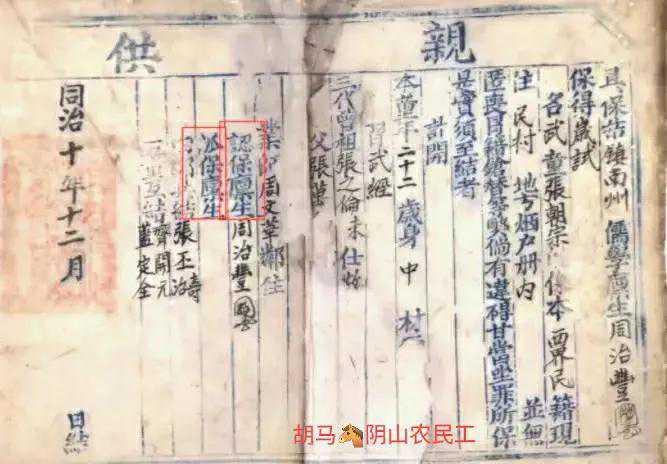 親供
具保結鎮南州 儒學廩生周治豐
保得歲試
各武童張朝宗 係本 界民 籍現
住 民村 地号烟户册内 並無
匿喪冒籍鎗替等弊倘有違碍甘當坐罪所保
是實須至結者
計開
本童年二十二歲身中 材
習武經
三代曾祖張之倫未仕
父張
業師周文萃鄰佑
認保廩生周治豐
派保廩生
張丕
互結齊開元
蓋定全
同治十年十二月 日結
胡马🐴阴山农民工